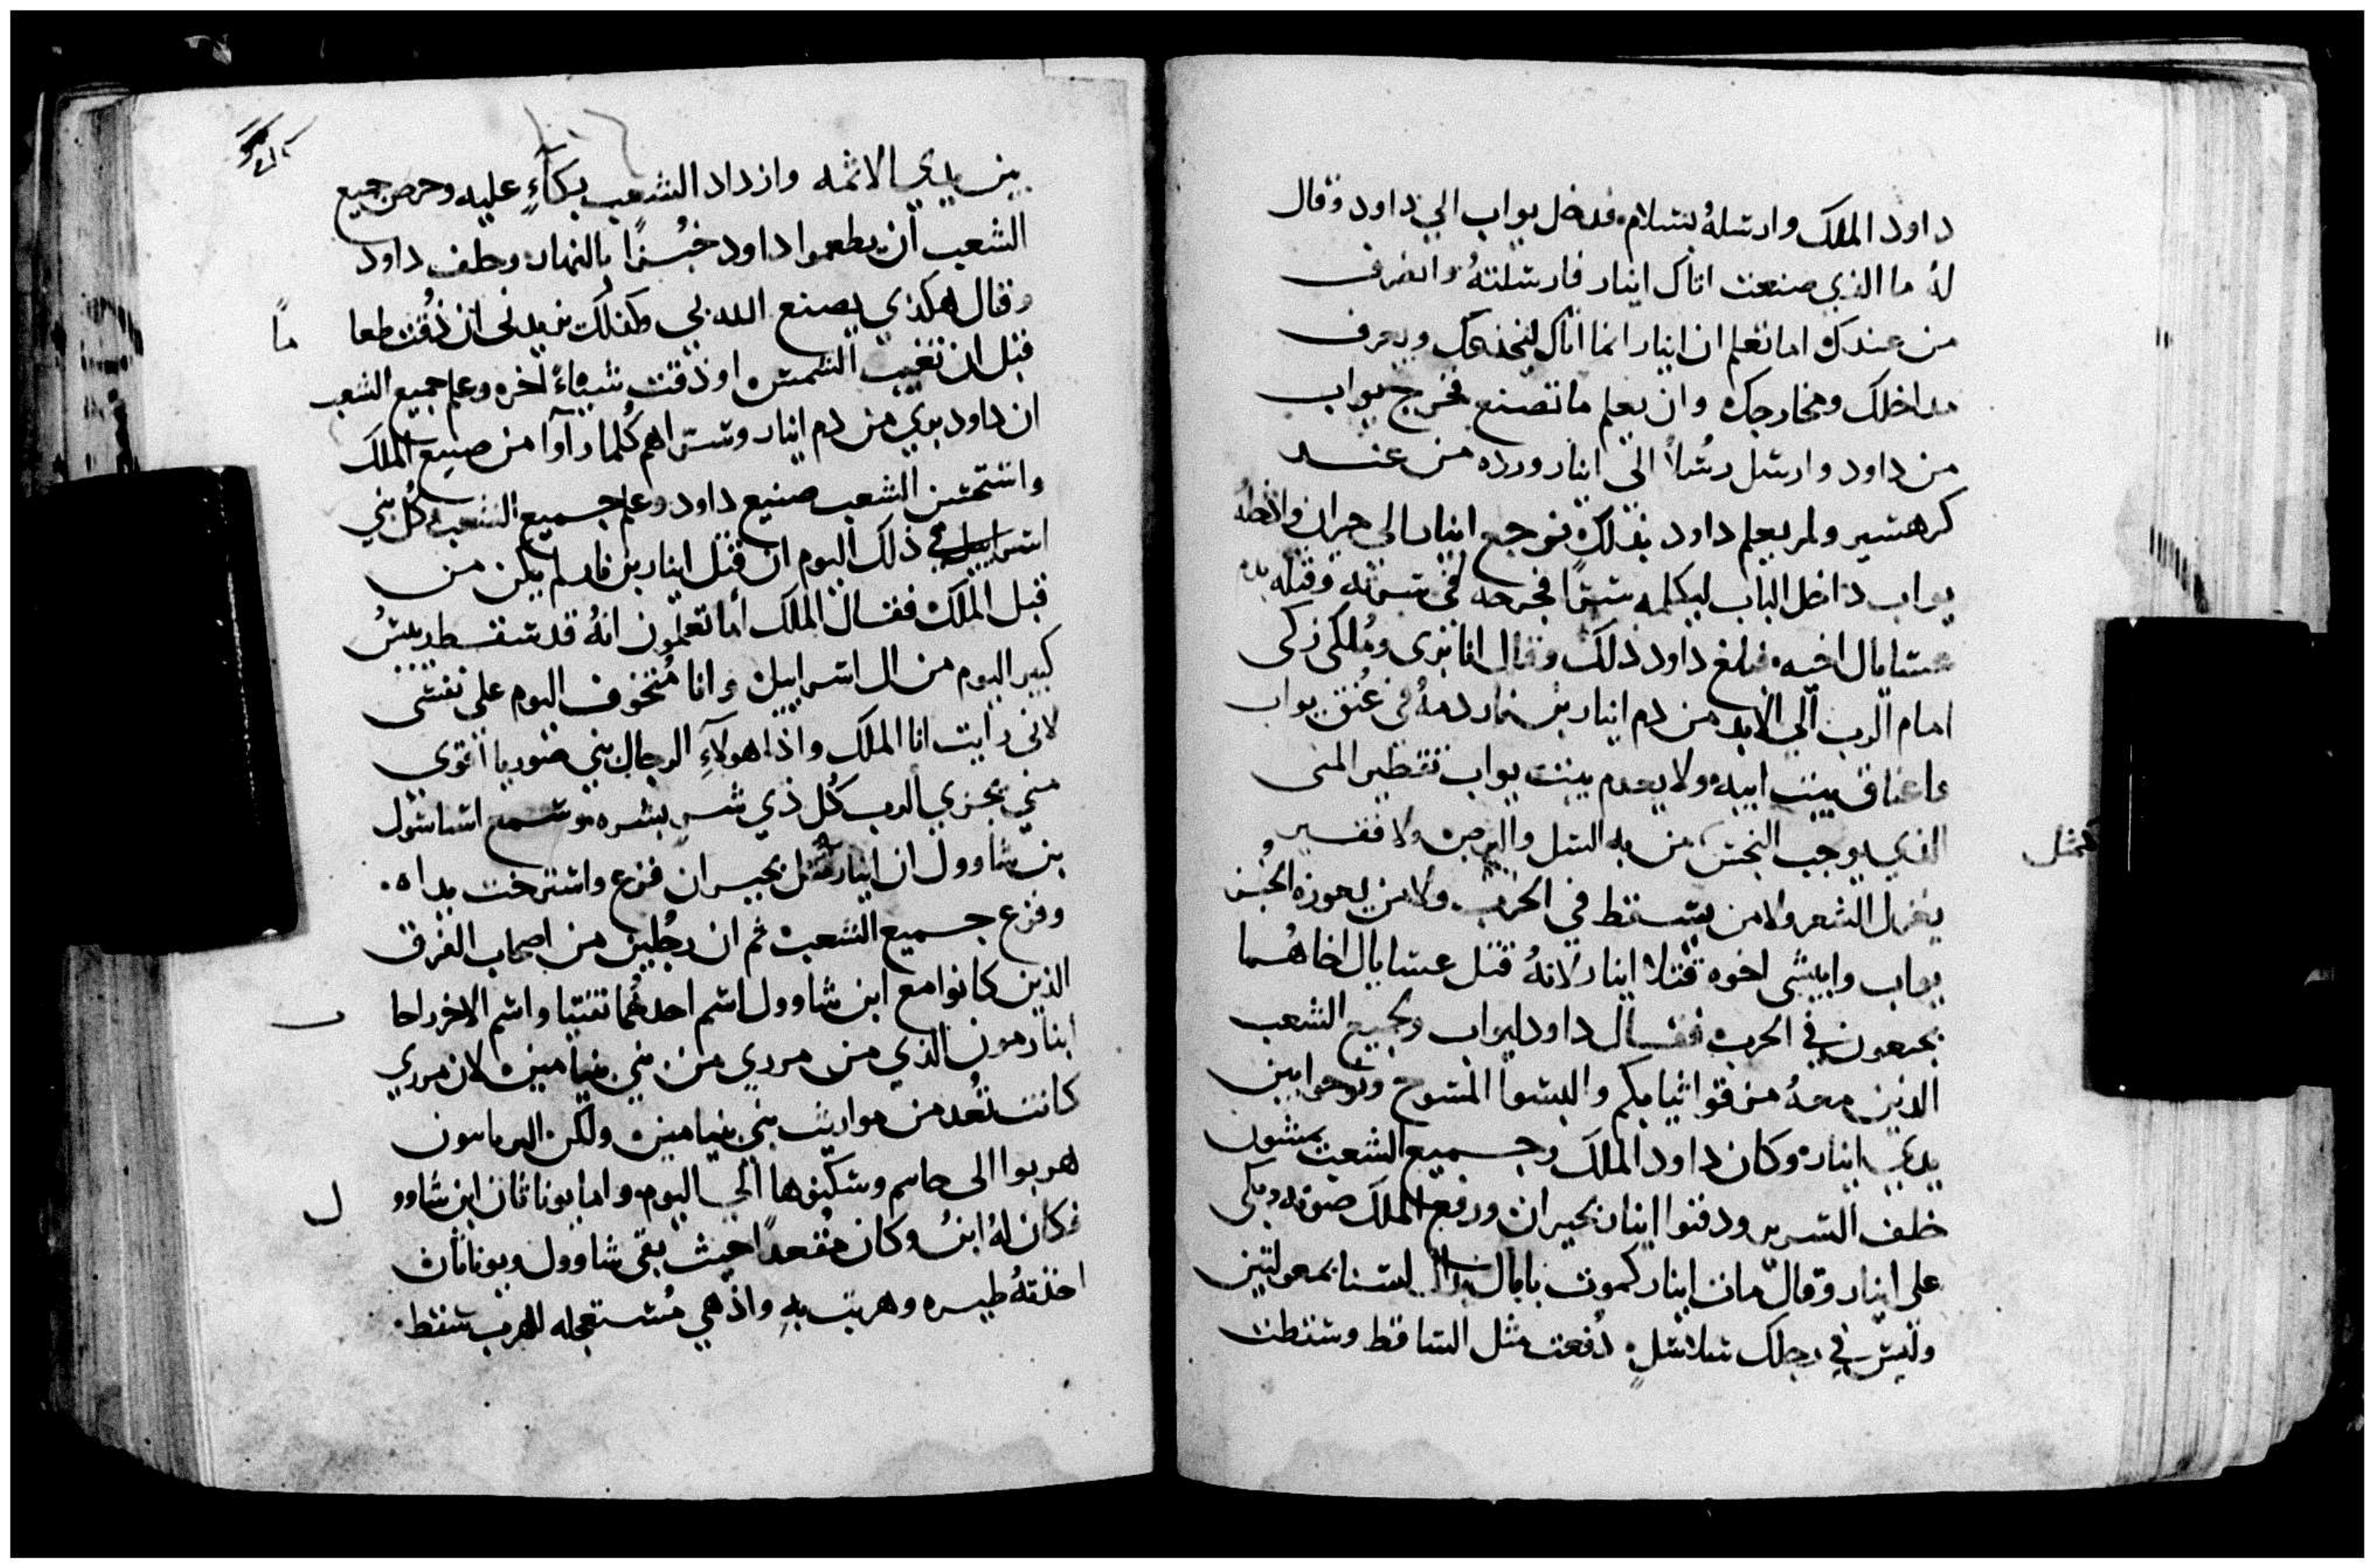 داود الملك وارسله بسلام فدخل يواب الي داود وقال
له ما الذي صنعت اتاك ابنار فارسلته وانصرف
من عندك اما تعلم ان ابنار انما اتاك ليخدعك ويعرف
مداخلك ومخارجك وان يعلم ما تصنع فخرج يواب
من داود وارسل رسلاً الى ابنار ورده من عند
كرهسير ولم يعلم داود بذلك فرجع ابنار الى حبران
يواب داخل الباب ليكلمه سرًا فجرحه في سرته وقتله بدم
عسايال اخيه فبلغ داود ذلك وقال انا بري وملكي زكى
امام الرب الي الابد من دم ابنار بن نار دمه في عنق يواب
واعناق بيت ابيه ولا يعدم بيت يواب تقطير المنى
الذي يوجب النجس من به السل والبرص ولا فقير
كمثل
يغزل الشعر ولا من يسقط في الحرب ولا من يعوزه الخبز
يواب وابيشى اخوه قتلا ابنار لانه قتل عسايال اخاهما
بجبعون في الحرب فقال داود ليواب ولجميع الشعب
الذين معه مزقوا ثيابكم والبسوا المسوح ونوحوا بين
يدي ابنار وكان داود الملك وجميع الشعب يمشون
خلف السرير ودفنوا ابنار بحبران ورفع الملك صوته وبكى
على ابنار وقال مات ابنار كموت نابال يداك ليستا بمغولتين
وليس في رجلك سلاسل دفعت مثل الساقط وسقطت
بين يدي الاثمه وازداد الشعب بكاءٍ عليه وحرص جميع
الشعب ان يطعموا داود خبزًا بالنهار وحلف داود
وقال هكذي يصنع الله بي وكذلك يزيدني ان ذُقت طعا
مًا
قبل ان تغيب الشمس او ذقت شيياً اخره وعلم جميع الشعب
ان داود بري من دم ابنار وسراهم كلما رآوا من صنيع الملك
واستحسن الشعب صنيع داود وعلم جميع الشعب وكل بني
اسراييل في ذلك اليوم ان قتل ابنار بن نار لم يكن من
قبل الملك فقال الملك اما تعلمون انه قد سقط ريس
كبير اليوم من ال اسراييل وانا متخوف اليوم على نفسى
لانى رايت انا الملك واذا هولاء الرجال بني صوريا اقوي
مني يجزي الرب كل ذي شر بشره وسمع اساسول
بن شاوول ان ابنار قتل بحبران فزع واسترخت يداه
وفزع جميع الشعب ثم ان رجلين من اصحاب الغزو
الذين كانوا مع ابن شاوول اسم احدهما تعنتا واسم الاخر راحا
ب
ابنا رمون الذي من مردي من بني بنيامين لان مردي
كانت تعد من مواريث بني بنيامين ولكن
هربوا الى حاسم وسكنوها الي اليوم واما يوناثان ابن شاوو
ل
فكان له ابنٌ وكان مقعدًا حيث بقى شاوول ويوناثان
اخذته طيره وهربت به واذ هي مستعجله للهرب سقط